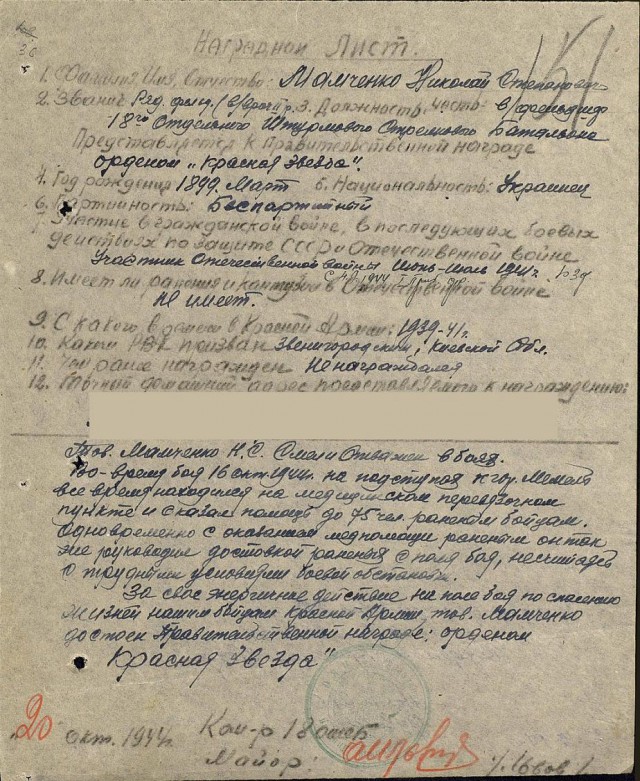 Наградной Лист.
1. Фамилия Имя, Отчество: Мамченко Николай Степанович
2. Звание Ряд. 3. Должность, часть: в/фельдшер
18го Отдельного Штурмового Стрелкового Батальона
Представляется к правительственной награде
орденом „Красная Звезда".
4. Год рождения 1899 Март 5. Национальность: Украинец
6. Партийность: Беспартийный
Участие в гражданской войне, в последующих боевых
действиях по защите СССР и Отечественной войне
Участник Отечественной войны Июнь-Июль 1941 г.
8. Имеет ли ранения и контузии в Отечественной войне
Не имеет.
9. С какого времени в Красной Армии: 1939-41 г.
10. Каким РВК призван Звенигородским, Киевской Обл.
11. Чем ранее награжден Не награждался
12. домашний адрес представляемого к награждению:
Тов. Мамченко Н.С. Смел и Отважен в боях.
Во-время боя 16 окт. 1944 г. на подступах к гор. Мемель
все время находился на медицинском перевязочном
пункте и оказал помощь до 75 чел. раненым бойцам.
Одновременно с оказанием медпомощи раненым он так
же руководил доставкой раненых с поля боя, несмотря
о трудными условиями боевой обстановки.
За свое действие на поле боя по спасению
жизней нашим бойцам Красной Армии, тов. Мамченко
достоин Правительственной награде: орденом
Красная Звезда"
"20 окт. 1944 г. Ком-р 18 ошсб
Майор: /Львов/
151